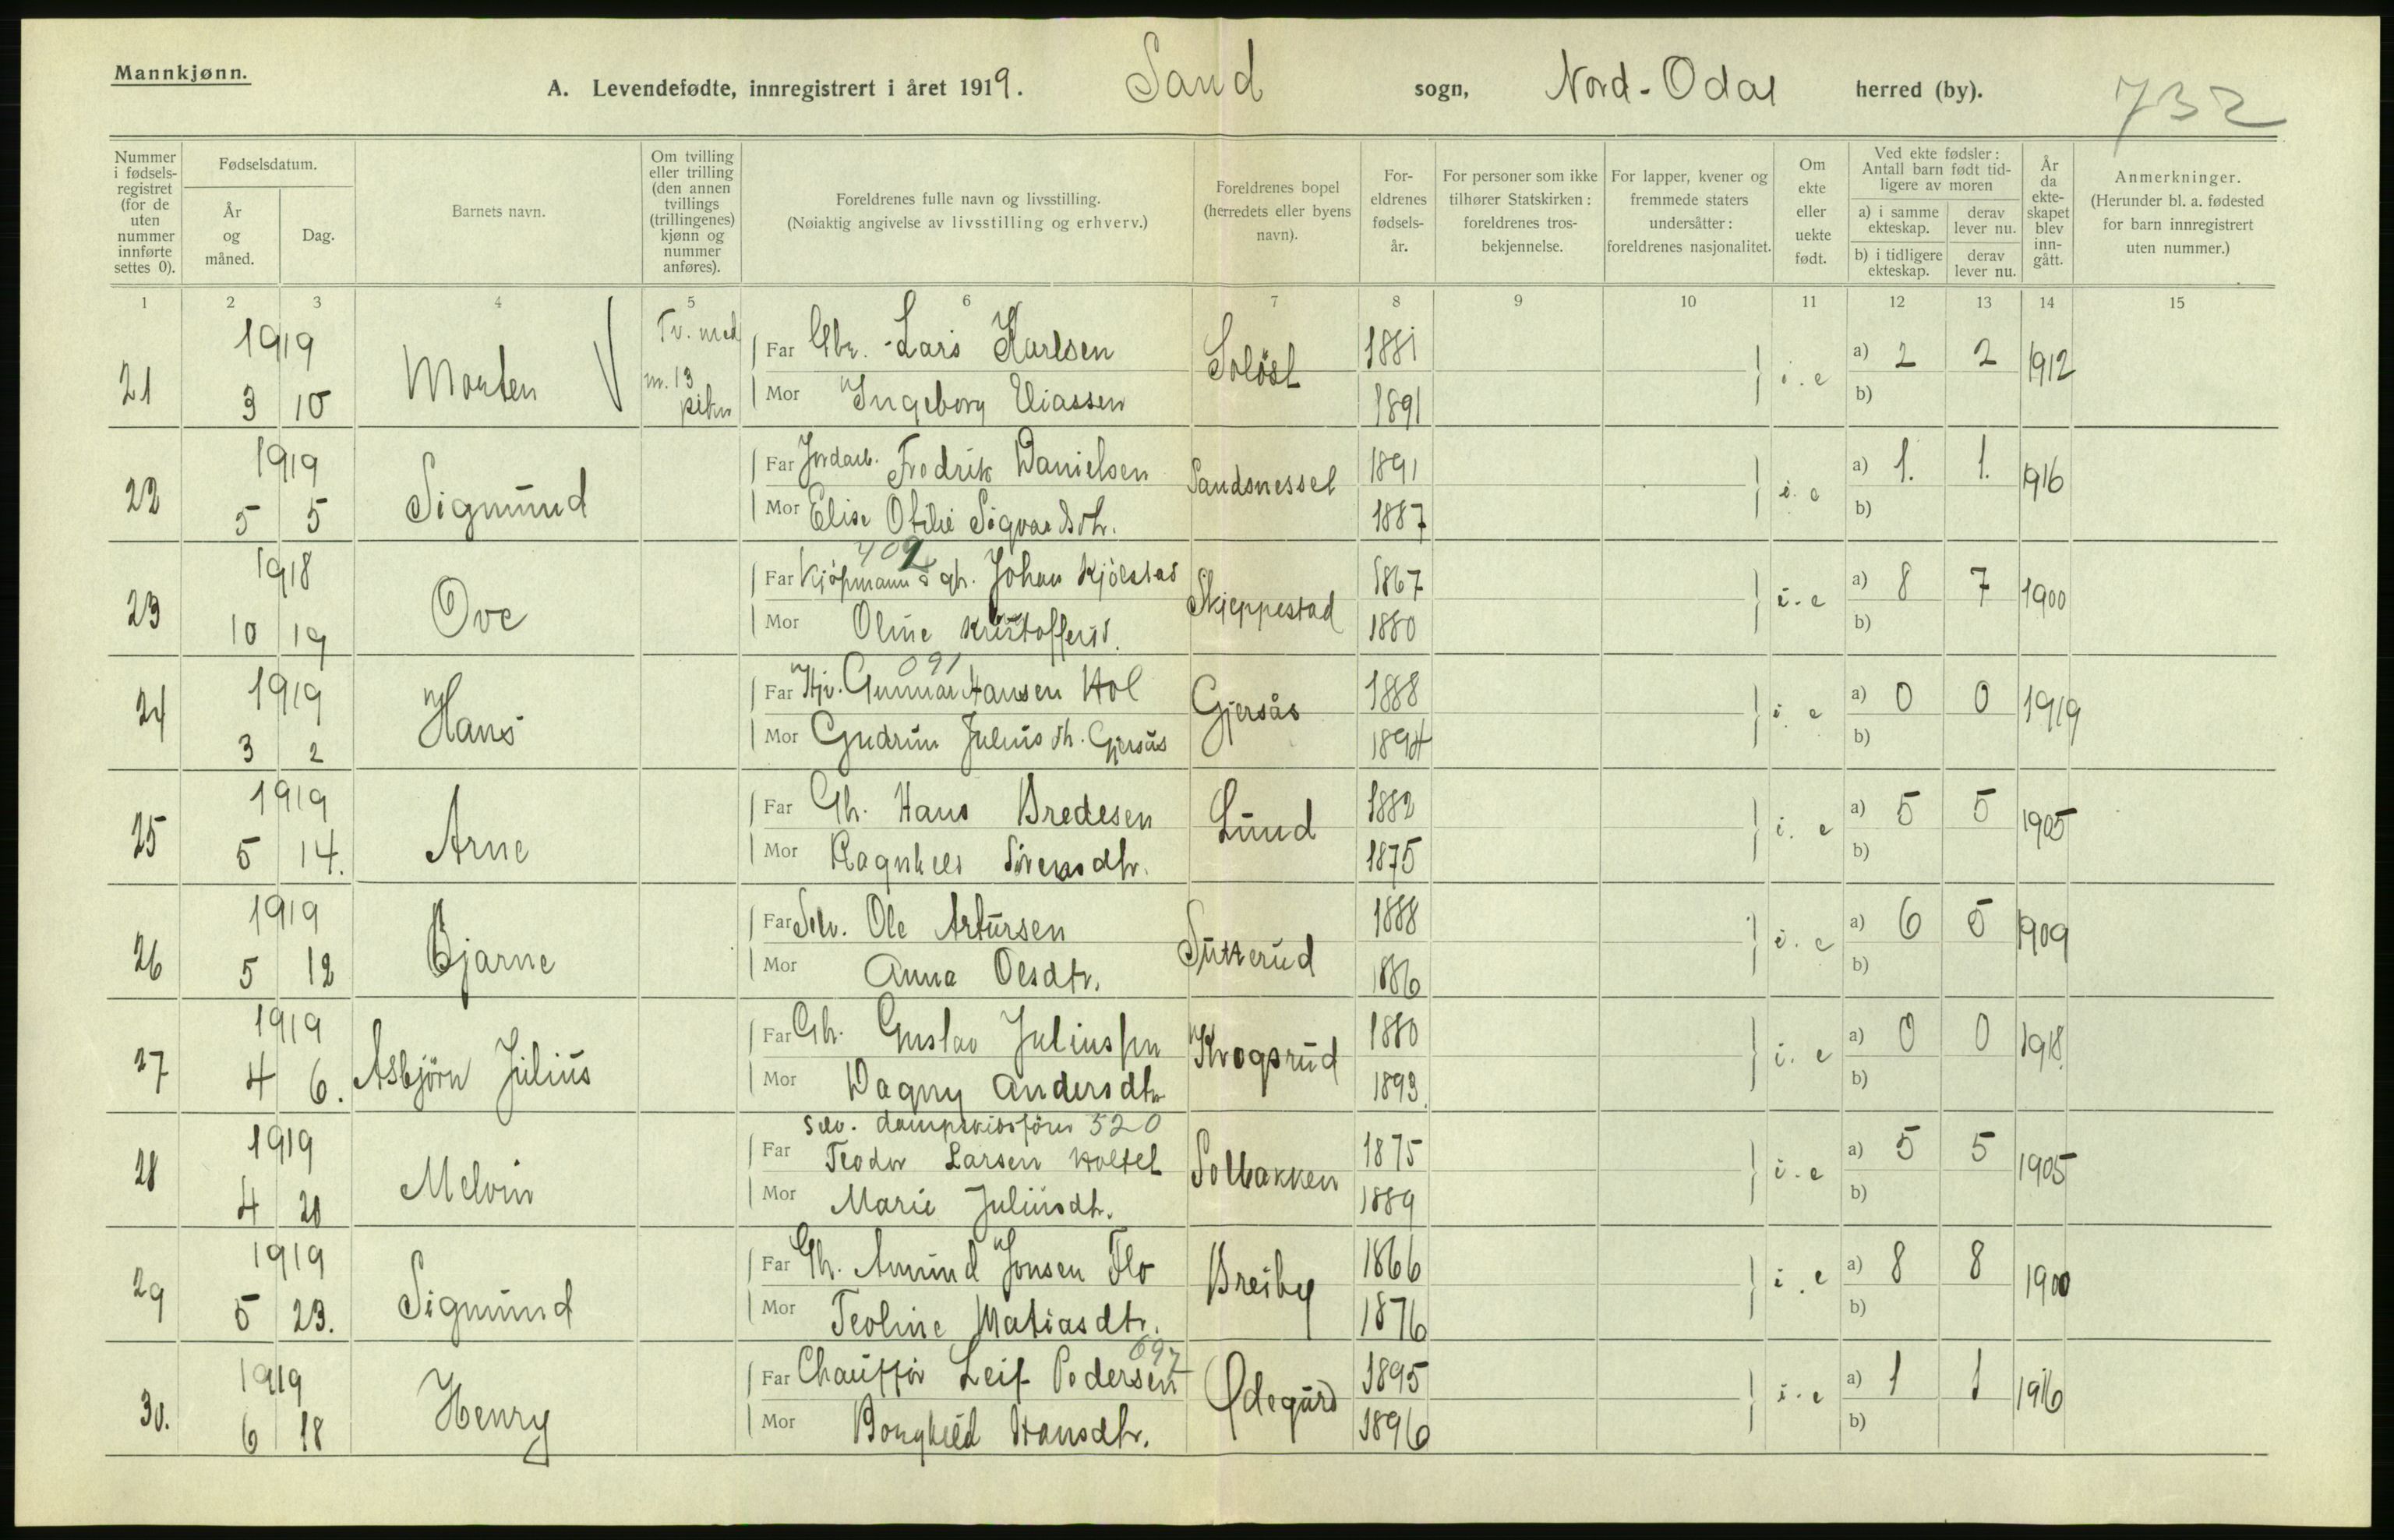 Mannkjønn.
A. Levendefødte, innregistrert i året 1919. Sand sogn, Nord-Odal herred (by). 732
Nummer i fødselsregistret (for de uten nummer innførte settes 0).
Fødselsdatum.
År og måned.
Dag.
Barnets navn.
Om tvilling eller trilling (den annen tvillings (trillingenes) kjønn og nummer anføres).
Foreldrenes fulle navn og livsstilling.
(Nøiaktig angivelse av livsstilling og erhverv.)
Foreldrenes bopel (herredets eller byens navn).
Foreldrenes fødselsår.
For personer som ikke tilhører Statskirken: foreldrenes trosbekjennelse.
For lapper, kvener og fremmede staters undersåtter: foreldrenes nasjonalitet.
Om ekte eller uekte født.
Ved ekte fødsler: Antall barn født tidligere av moren
a) i samme ekteskap. derav lever nu.
b) i tidligere ekteskap. derav lever nu.
År da ekteskapet blev inngått.
Anmerkninger.
(Herunder bl. a. fødested for barn innregistrert uten nummer.)
1 2 3 4 5 6 7 8 9 10 11 12 13 14 15
21 1919 3 10 Morten Tv. med nr. 13
Far Gbr. Lars Karlsen Soløst 1881 i.e a) 2 2 1912
Mor Ingeborg Eliassen 1891 b)
22 1919 5 5 Sigmund
Far Jordarb. Fredrik Danielsen Sandsnesset 1891 i.e a) 1. 1. 1916
Mor Elise Otilie Sigvardsdtr. 1887 b)
23 1918 10 19 Ove
402
Far Kjøpmann & gb. Johan Kjølstad Skjeppestad 1867 i.e a) 8 7 1900
Mor Oline Kristoffersd. 1880 b)
24 1919 3 2 Hans
091
Far Gunnar Hansen Hol Gjersås 1888 i e a) 0 0 1919
Mor Gudrun Juliusdt. Gjersås 1894 b)
25 1919 5 14. Arne
Far Gb. Hans Bredesen Lund 1882 i. e a) 5 5 1905
Mor Ragnhild Siversdtr. 1875 b)
26 1919 5 12 Bjarne
Far Selv. Ole Artursen Sutterud 1888 i. e a) 6 5 1909
Mor Anna Olsdtr. 1886 b)
27 1919 4 6. Asbjörn Julius
Far Gb. Gustav Juliussen Krogsrud 1880 i. e a) 0 0 1918
Mor Dagny Andersdtr 1893. b)
28 1919 4 20 Melvin
Selv. dampskibsfører 520
Far Teodor Larsen Holtet Solbakken 1875 i.e a) 5 5 1905
Mor Marie Juliusdtr. 1889 b)
29 1919 5 23. Sigmund
Far Gb. Amund Jonsen Flo Breiby 1866 i.e a) 8 8 1900
Mor Teoline Matiasdtr. 1876 b)
30. 1919 6 18 Henry
697
Far Chauffør Leif Pedersen Ødegård 1895 i.e a) 1 1 1916
Mor Borghild Hansdtr. 1896 b)